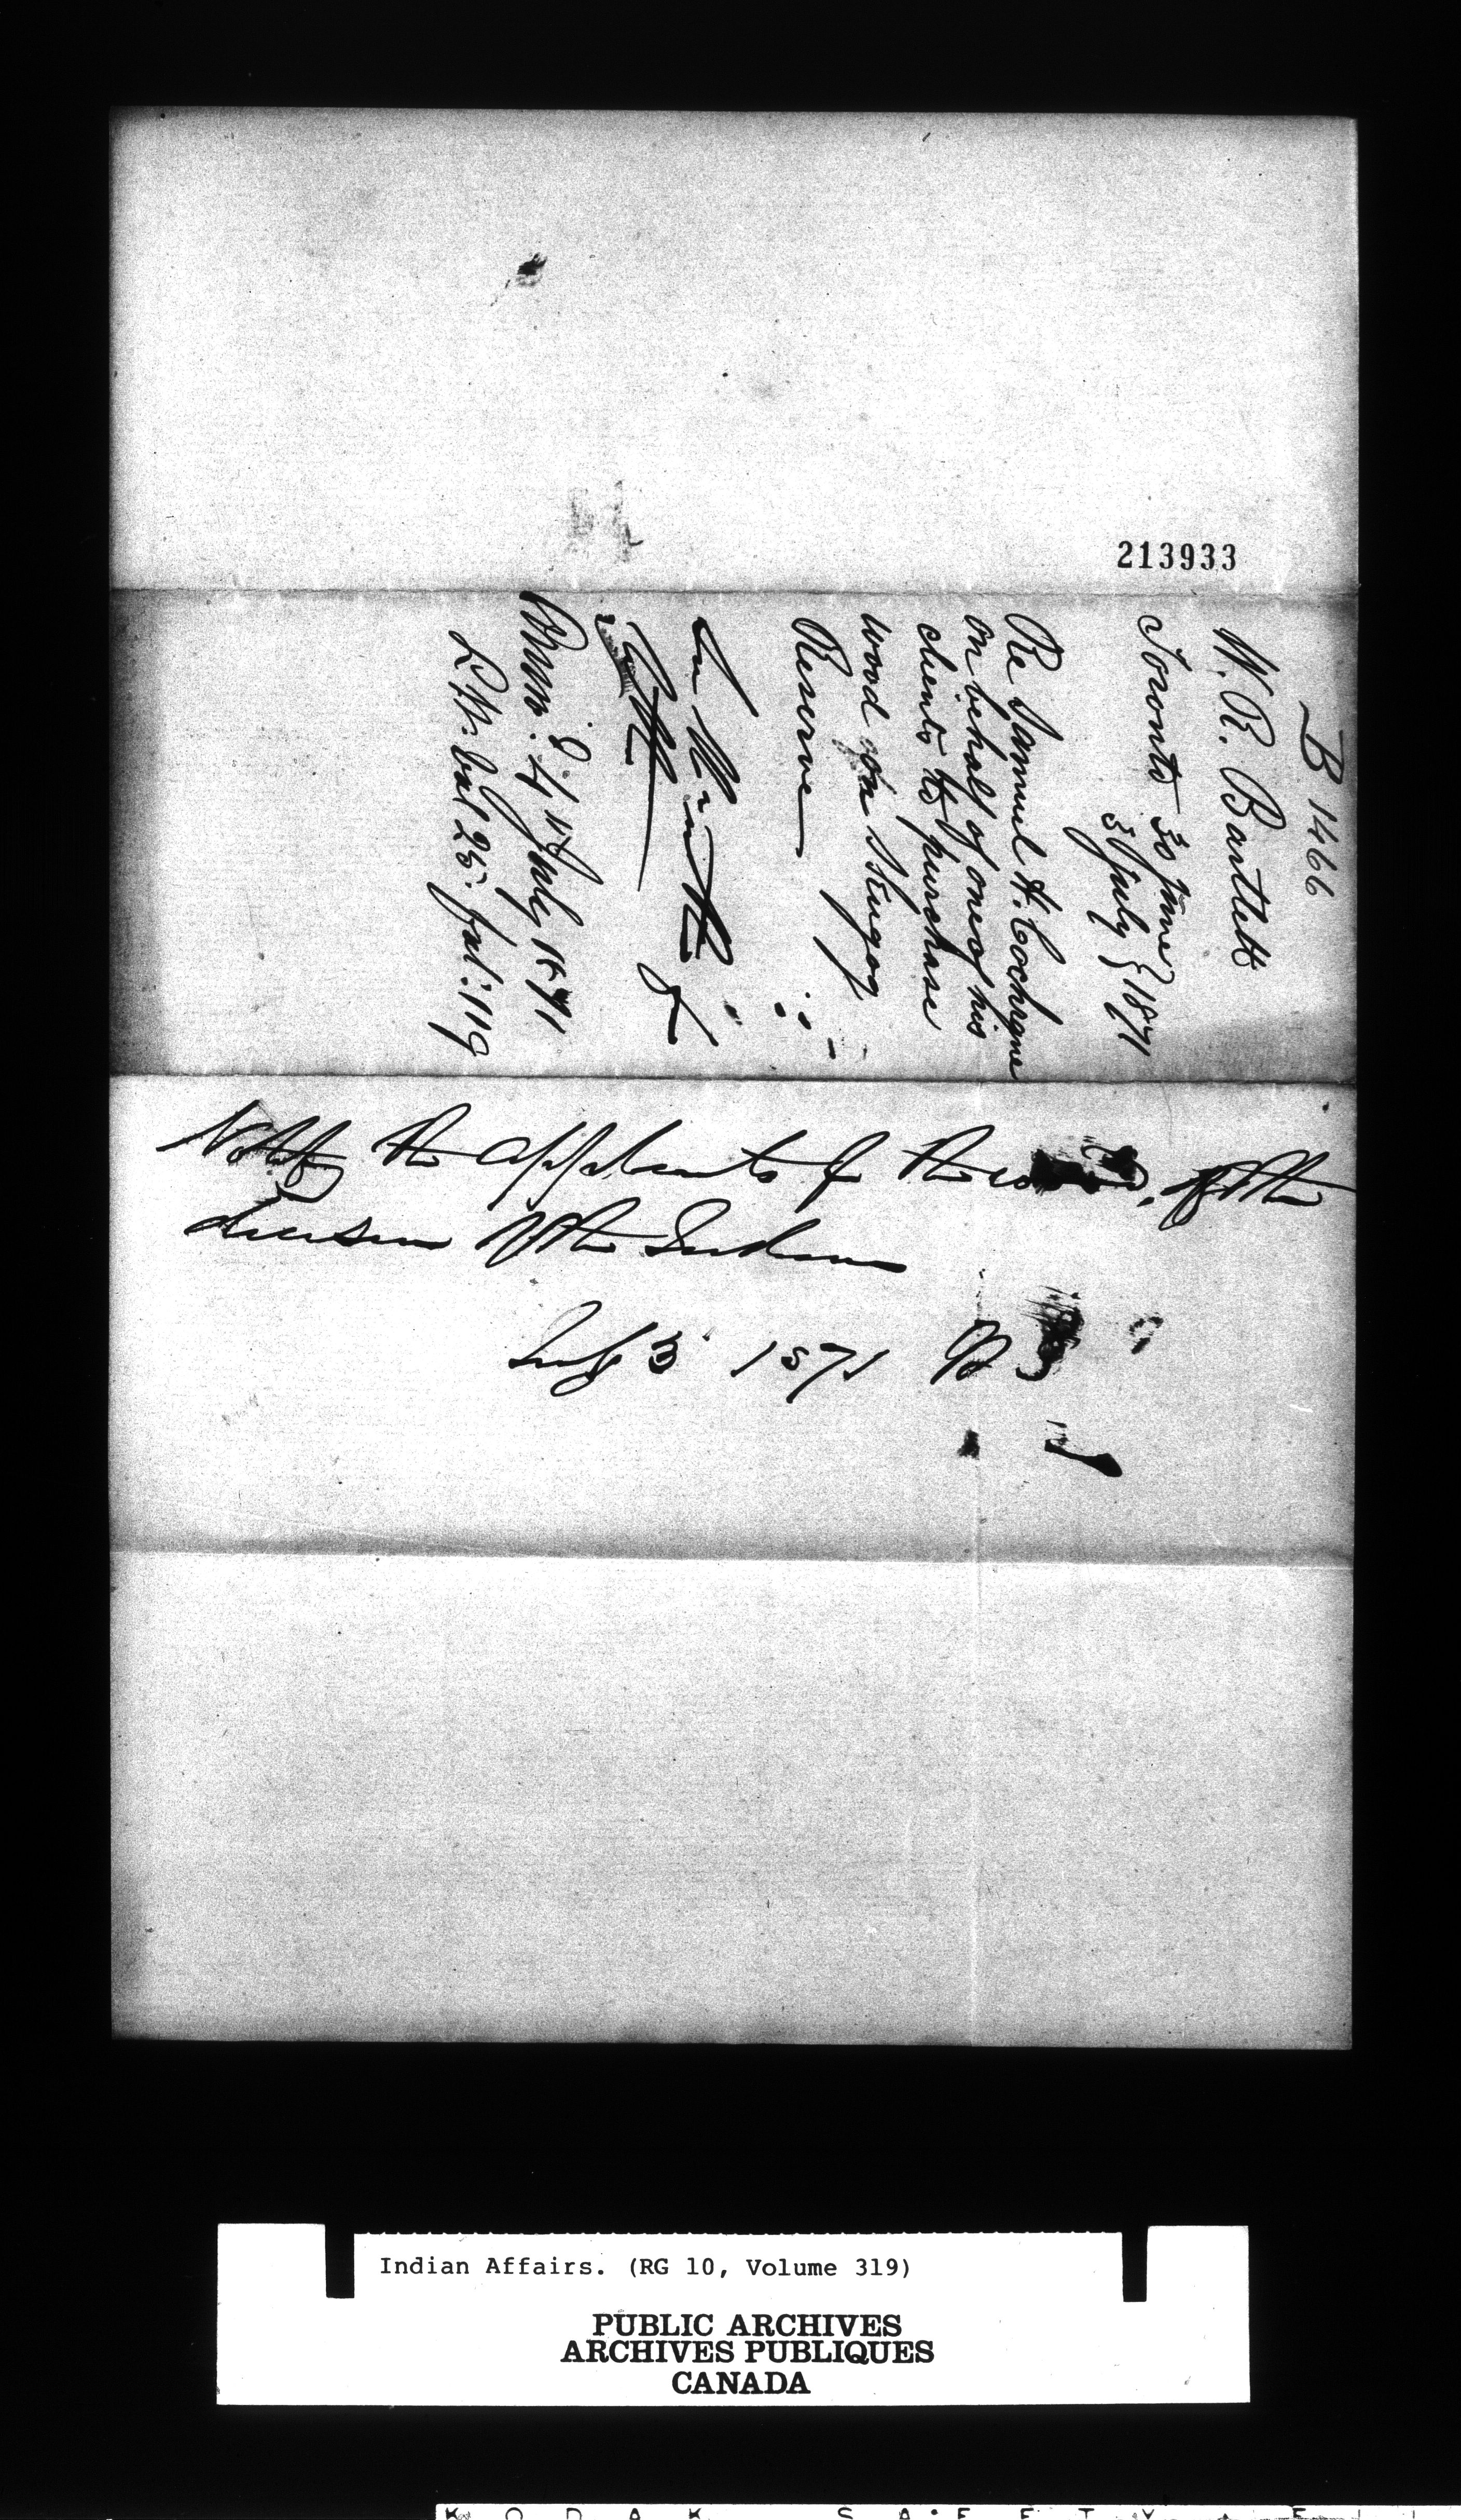 213933
B 1466
W. R. Bartlett
Toronto 30 June }
3 July } 1871
Re Samuel H. Cochrane
on behalf of one of his
clients to purchase
wood on Skugog
Reserve
Answ. 4 July 1871
L.W. bal 25. fol: 119
Notify the applicants for the of the
decision of the Indians
July 3 1871
Indian Affairs. (RG 10, Volume 319)
PUBLIC ARCHIVES
ARCHIVES PUBLIQUES
CANADA
KODAK SAFETY